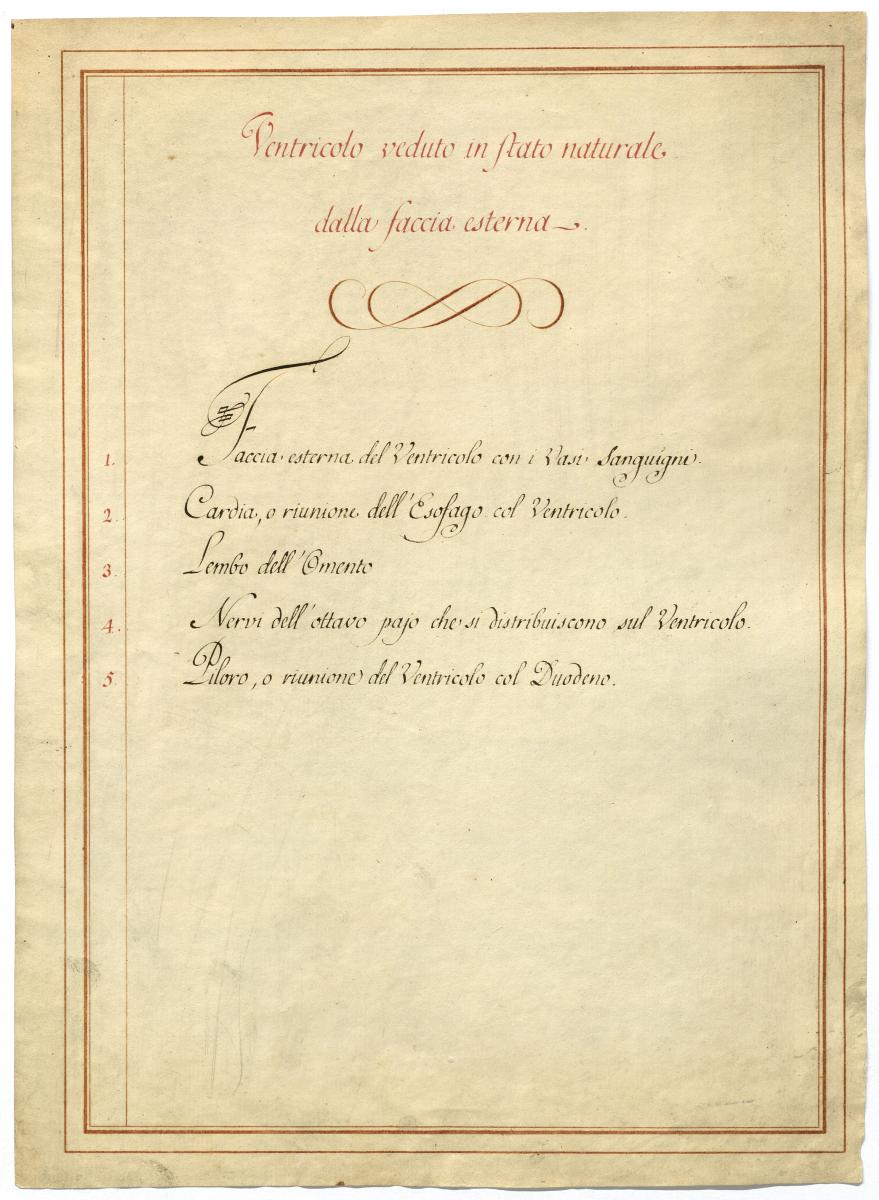 Ventricolo veduto in stato naturale.
dalla faccia esterna.
1. Faccia esterna del Ventricolo con i Vasi Sanguigni.
2. Cardia, o riunione dell'Esofago col Ventricolo.
3. Lembo dell'Omento
4. Nervi dell'ottavo pajo che si distribuiscono sul Ventricolo.
5. Piloro, o riunione del Ventricolo col Duodeno.